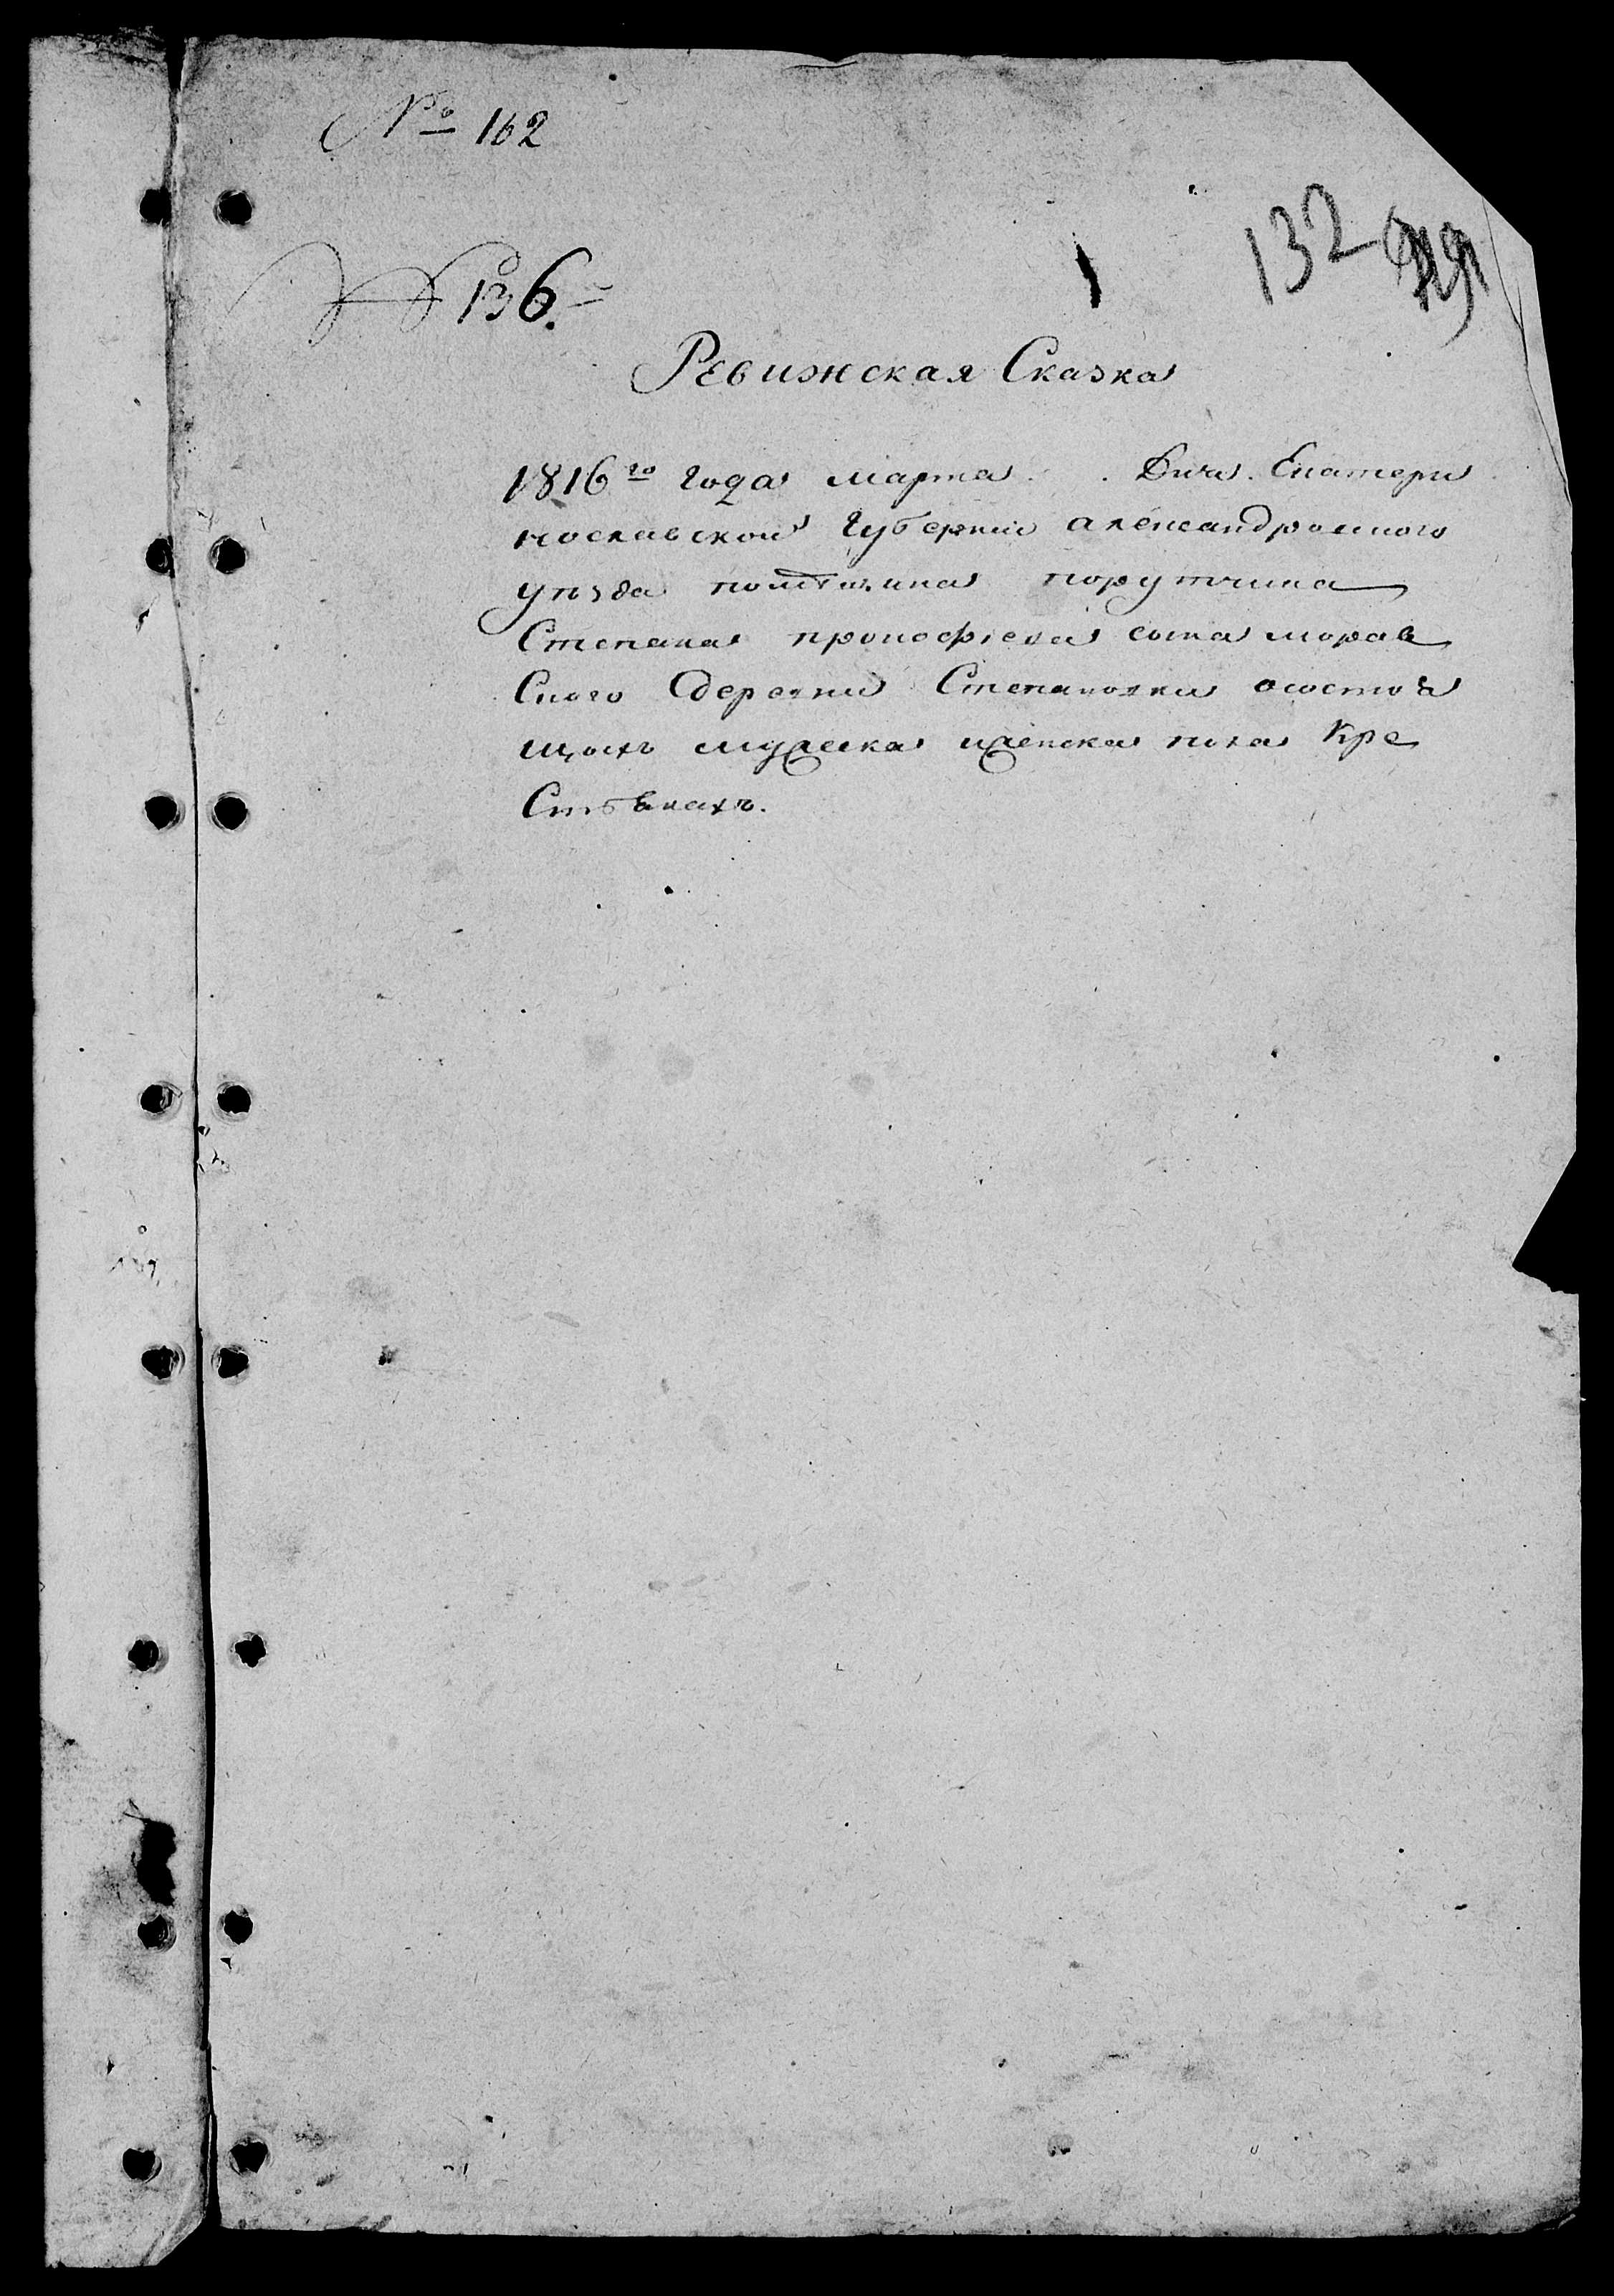 № 162
132
№ 136.
Ревижская Сказка
1816го года марта Дня. Екатери
нославской Губернии александровского
уезда помещика порутчика
Степана прокофьева сына морав
Ского Сдеревни Степановки осостоя
щихъ мужеска иженска пола Кре
Стьянахъ.